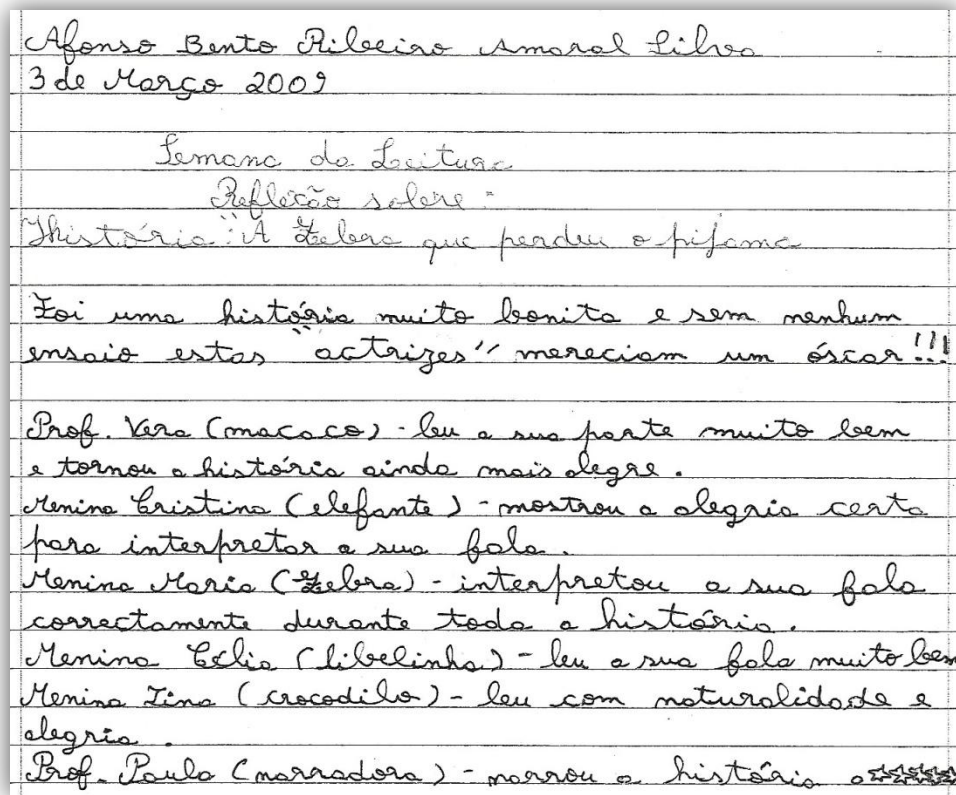 Afonso Bento Ribeiro Amaral Silva
3 de Março 2009
Semana da Leitura
Reflexão sobre:
História: "A Zebra que perdeu o pijama
Foi uma história muito bonita e sem nenhum
ensaio estas "actrizes" mereciam um óscar!!!
Prof. Vera (macaco) - leu a sua parte muito bem
e tornou a história ainda mais alegre.
Menina Cristina (elefante) - mostrou a alegria certa
para interpretar a sua fala.
Menina Maria (Zebra) - interpretou a sua fala
correctamente durante toda a história.
Menina Célia (libelinha) - leu a sua fala muito bem
Menina Tina (crocodilo) - leu com naturalidade e
alegria.
Prof. Paula (narradora) - narrou a história a☆☆☆☆☆